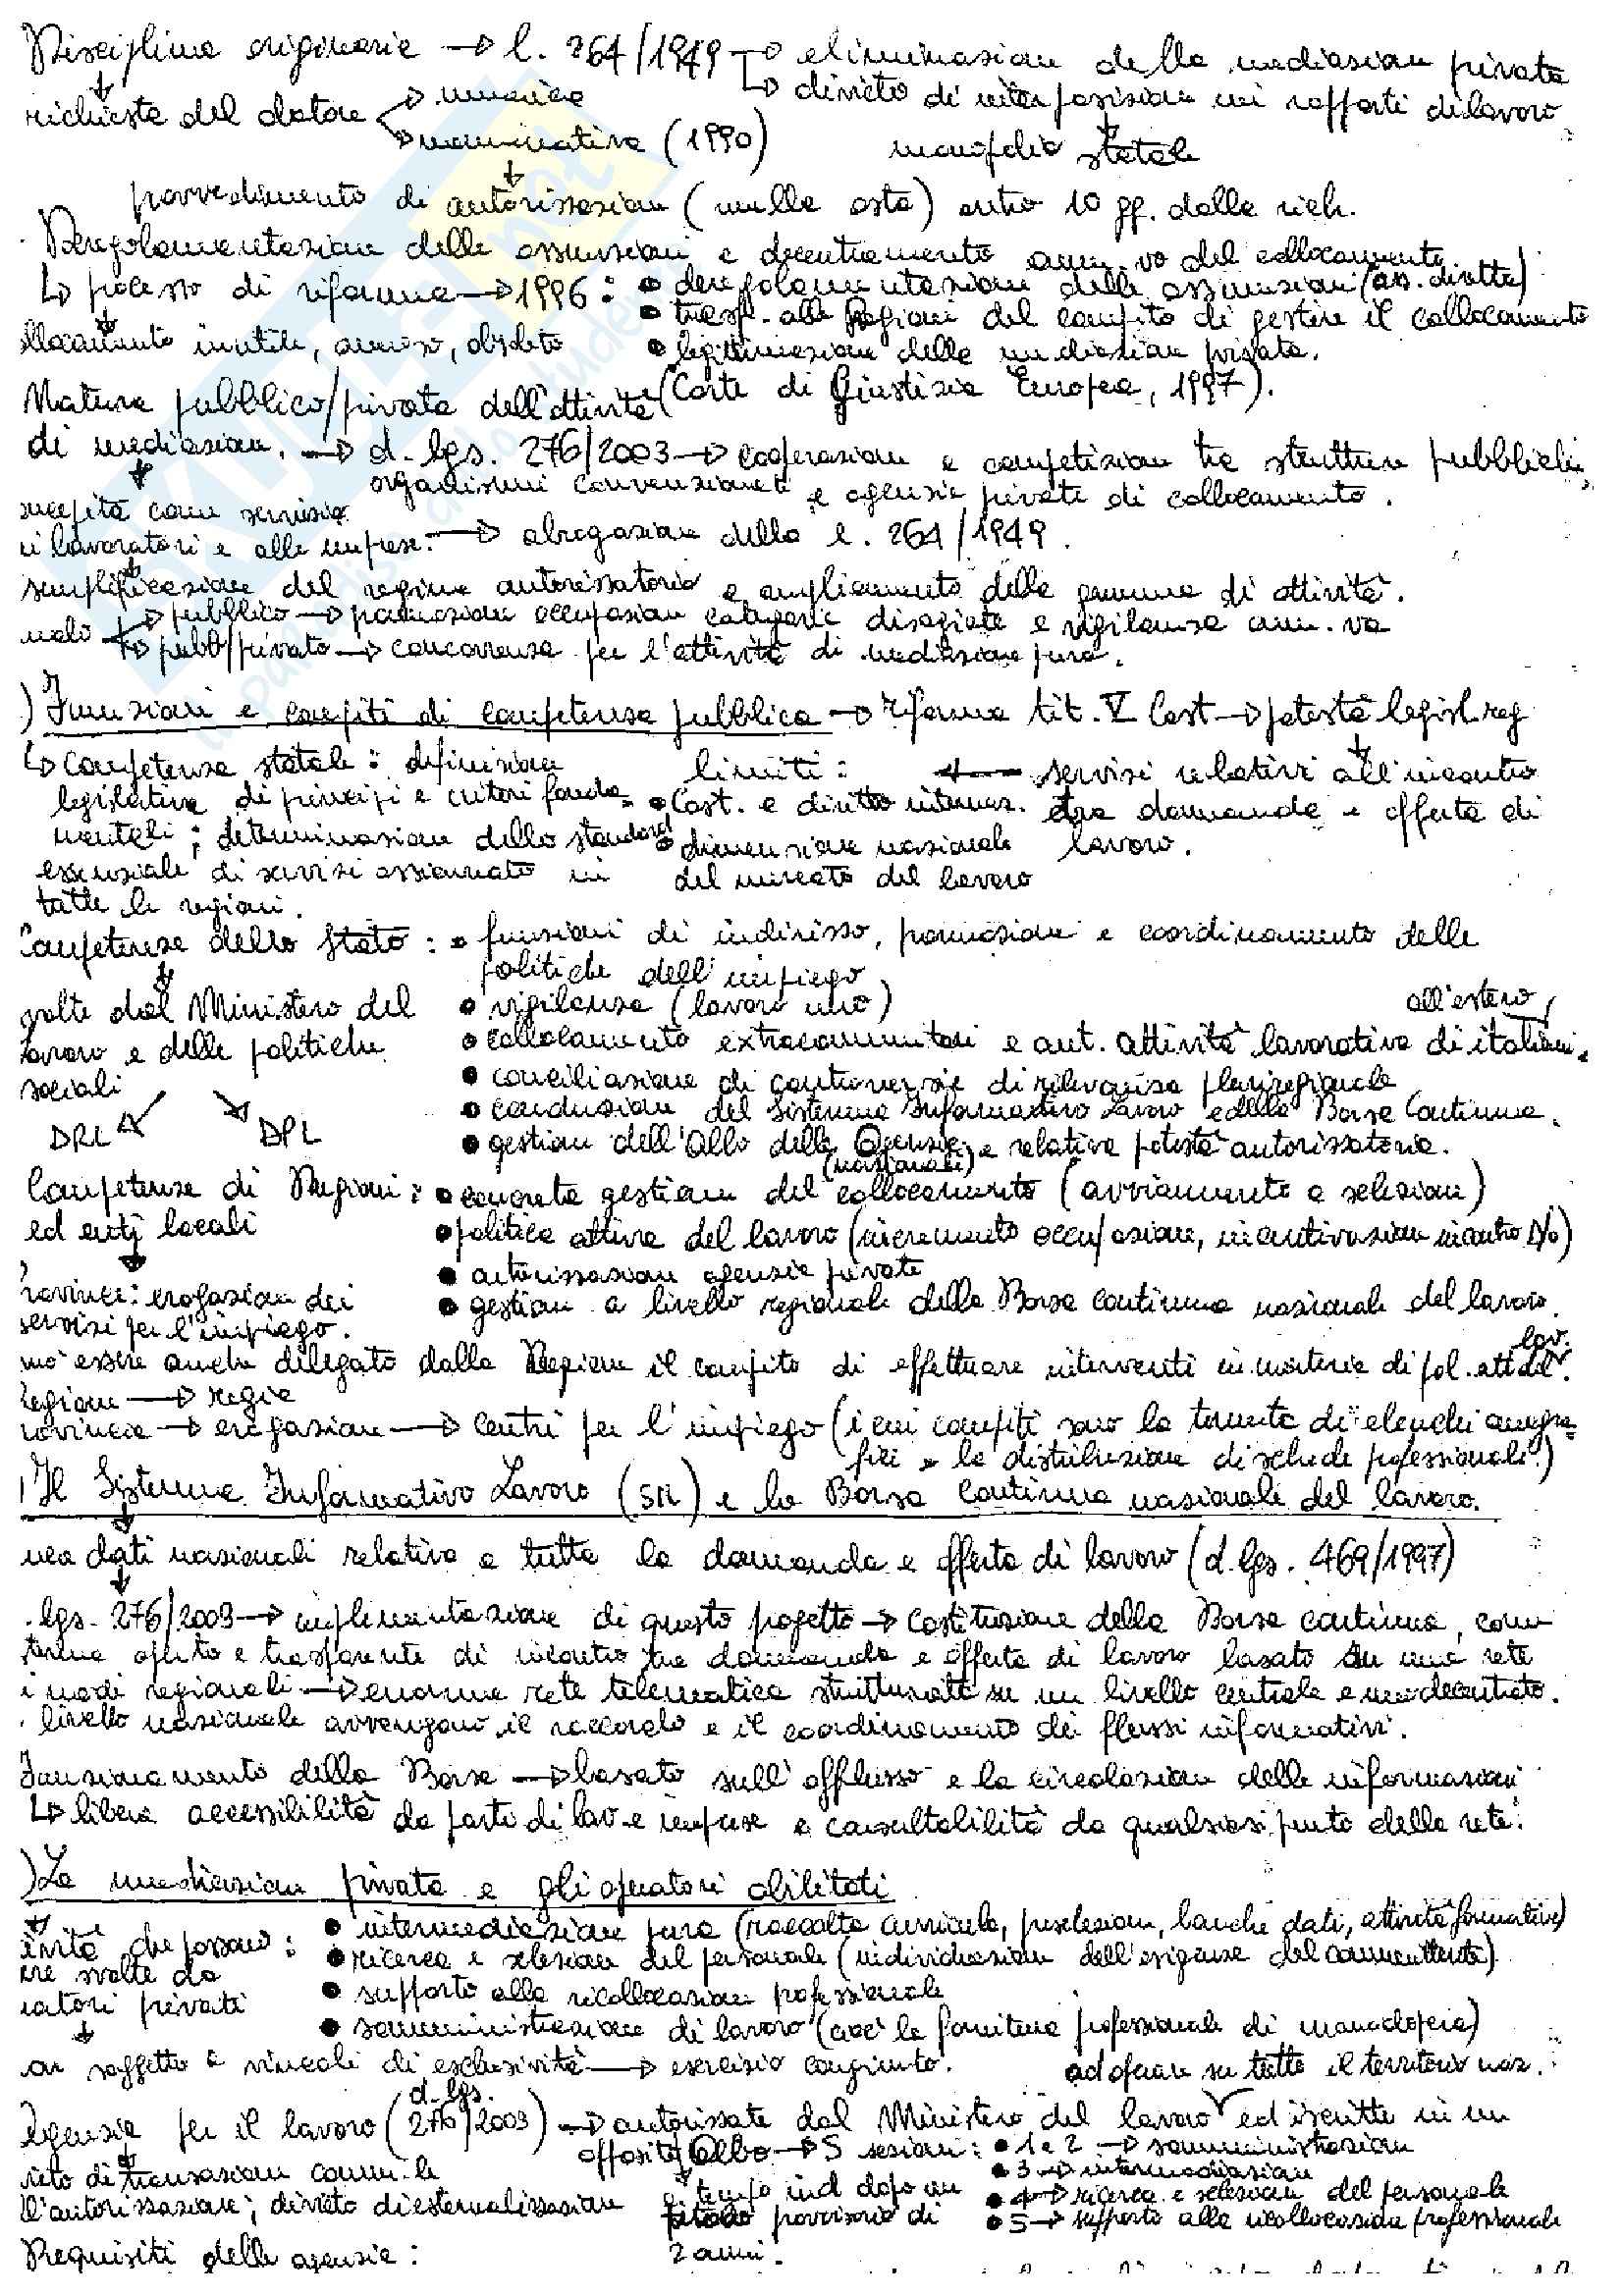 Disciplina originaria → l. 264/1949 → eliminazione della mediazione privata
↳ divieto di interposizione nei rapporti di lavoro
richiesta del datore < numerica
nominativa (1990) monopolio statale
provvedimento di autorizzazione (nulla osta) entro 10 gg. dalla rich.
Deregolamentazione delle assunzioni e decentramento amm.vo del collocamento
↳ processo di riforma → 1996: • deregolamentazione delle assunzioni (ass. diretta)
• trasf. alle Regioni del compito di gestire il collocamento
llocamento inutile, oneroso, obsoleto • legittimazione della mediazione privata.
(Corte di Giustizia Europea, 1997).
Natura pubblico/privata dell'attività
di mediazione. → d.lgs. 276/2003 → cooperazione e competizione tra strutture pubbliche,
organismi convenzionati e agenzie private di collocamento.
ncepita come servizio
i lavoratori e alle imprese. → abrogazione della l. 264/1949.
semplificazione del regime autorizzatorio e ampliamento della gamma di attività.
ruolo < pubblico → promozione occupazione categorie disagiate e vigilanza amm.va
pubb/privato → concorrenza per l'attività di mediazione pura.
) Funzioni e compiti di competenza pubblica → riforma tit. V Cost → potestà legisl. reg
↳ competenza statale: definizione limiti: ← servizi relativi all'incontro
legislativa di principi e criteri fonda- • Cost. e diritto internaz. tra domanda e offerta di
mentali; determinazione dello standard • dimensione nazionale lavoro.
essenziale di servizi assicurato in del mercato del lavoro
tutte le regioni.
Competenze dello Stato: • funzioni di indirizzo, promozione e coordinamento delle
politiche dell'impiego
volte dal Ministero del • vigilanza (lavoro nero) all'estero
lavoro e delle politiche • collocamento extracomunitari e aut. attività lavorativa di italiani.
sociali • conciliazione di controversie di rilevanza pluriregionale
• conduzione del Sistema Informativo Lavoro e della Borsa Continua.
DRL DPL • gestione dell'Albo delle Agenzie e relativa potestà autorizzatoria.
(nazionali)
Competenze di Regioni: • concreta gestione del collocamento (avviamento e selezione)
ed enti locali • politica attiva del lavoro (incremento occupazione, incentivazione incontro D/o)
• autorizzazione agenzie private
rovince: erogazione dei • gestione a livello regionale della Borsa continua nazionale del lavoro.
servizi per l'impiego.
uò essere anche delegato dalla Regione il compito di effettuare interventi in materia di pol. att. del lav.
Regione → regia
rovincia → erogazione → Centri per l'impiego (i cui compiti sono la tenuta di elenchi anagra-
fici e la distribuzione di schede professionali.)
) Il Sistema Informativo Lavoro (SIL) e la Borsa Continua nazionale del lavoro.
nca dati nazionali relativa a tutta la domanda e offerta di lavoro (d.lgs. 469/1997)
.lgs. 276/2003 → implementazione di questo progetto → costituzione della Borsa continua, come
tema aperto e trasparente di incontro tra domanda e offerta di lavoro basato su una rete
i nodi regionali → enorme rete telematica strutturata su un livello centrale e uno decentrato.
livello nazionale avvengono il raccordo e il coordinamento dei flussi informativi.
Funzionamento della Borsa → basato sull'afflusso e la circolazione delle informazioni
↳ libera accessibilità da parte di lav. e imprese e consultabilità da qualsiasi punto della rete.
) La mediazione privata e gli operatori abilitati
ività che possono: • intermediazione pura (raccolta curricula, preselezione, banche dati, attività formative)
ere svolte da • ricerca e selezione del personale (individuazione dell'esigenze del committente)
ratori privati • supporto alla ricollocazione professionale
• somministrazione di lavoro (cioè la fornitura professionale di manodopera)
on soggetto a vincoli di esclusività → esercizio congiunto. ad operare su tutto il territorio naz.
Agenzie per il lavoro (d.lgs. 276/2003) → autorizzate dal Ministero del lavoro ed iscritte in un
apposito Albo → 5 sezioni: • 1 e 2 → somministrazione
• 3 → intermediazione
ieto di transazione comm.le a tempo ind. dopo un • 4 → ricerca e selezione del personale
ll'autorizzazione; divieto di esternalizzazione titolo provvisorio di • 5 → supporto alla ricollocazione professionale
Requisiti delle agenzie: 2 anni.